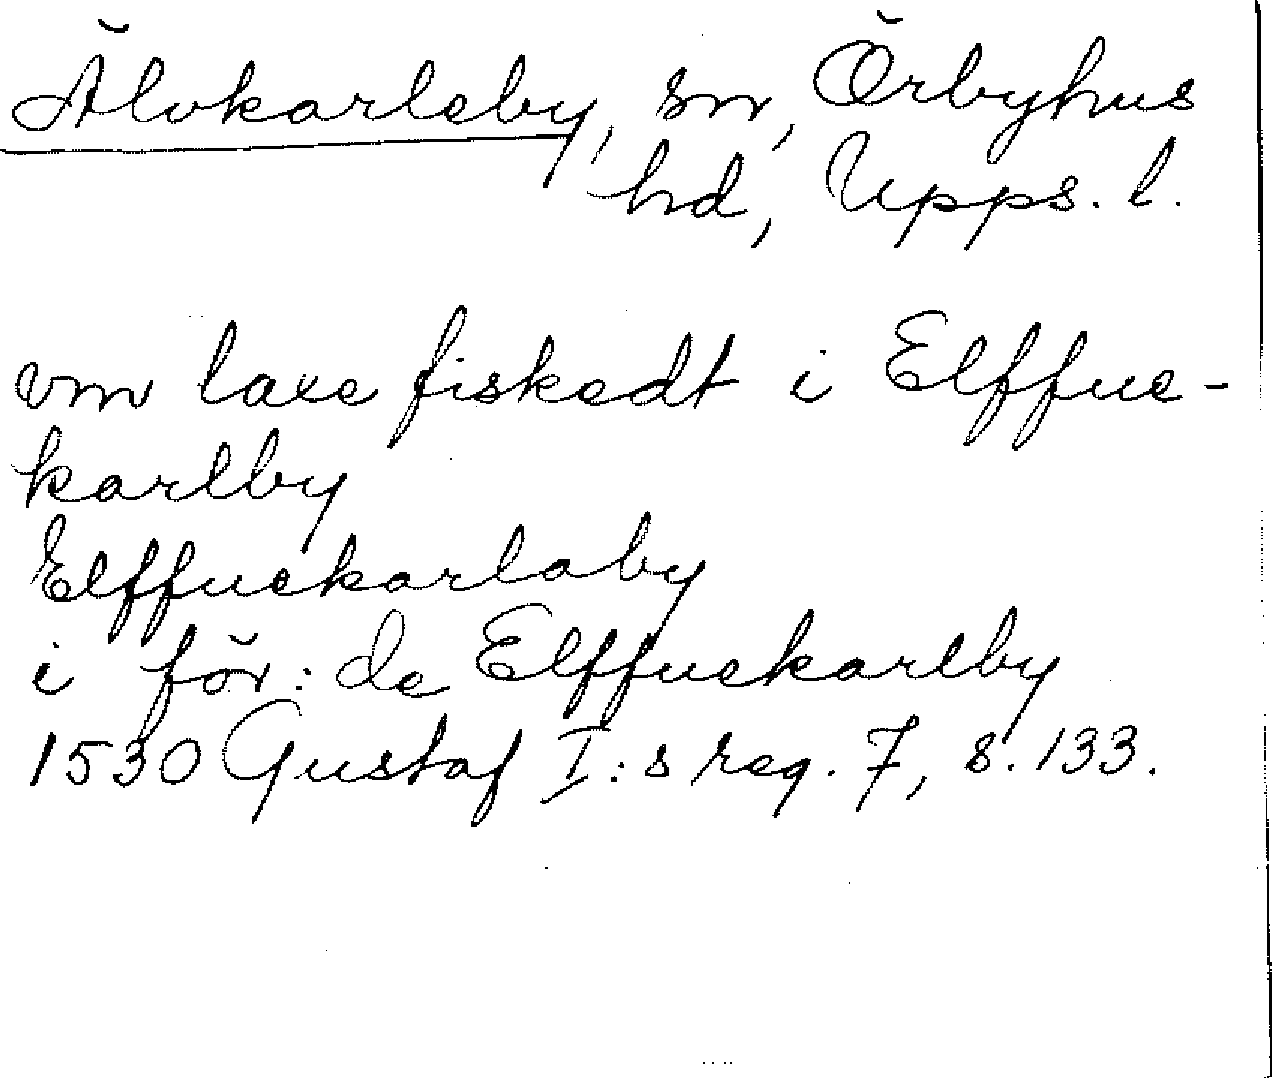 Älvkarleby, sn, Örbyhus
hd, Upps. l.
vm laxe fiskedt i Elffue-
karlby
Elffuekarlaby
i för: de Elffuekarlby
1530 Gustaf I:s reg. 7, s. 133.